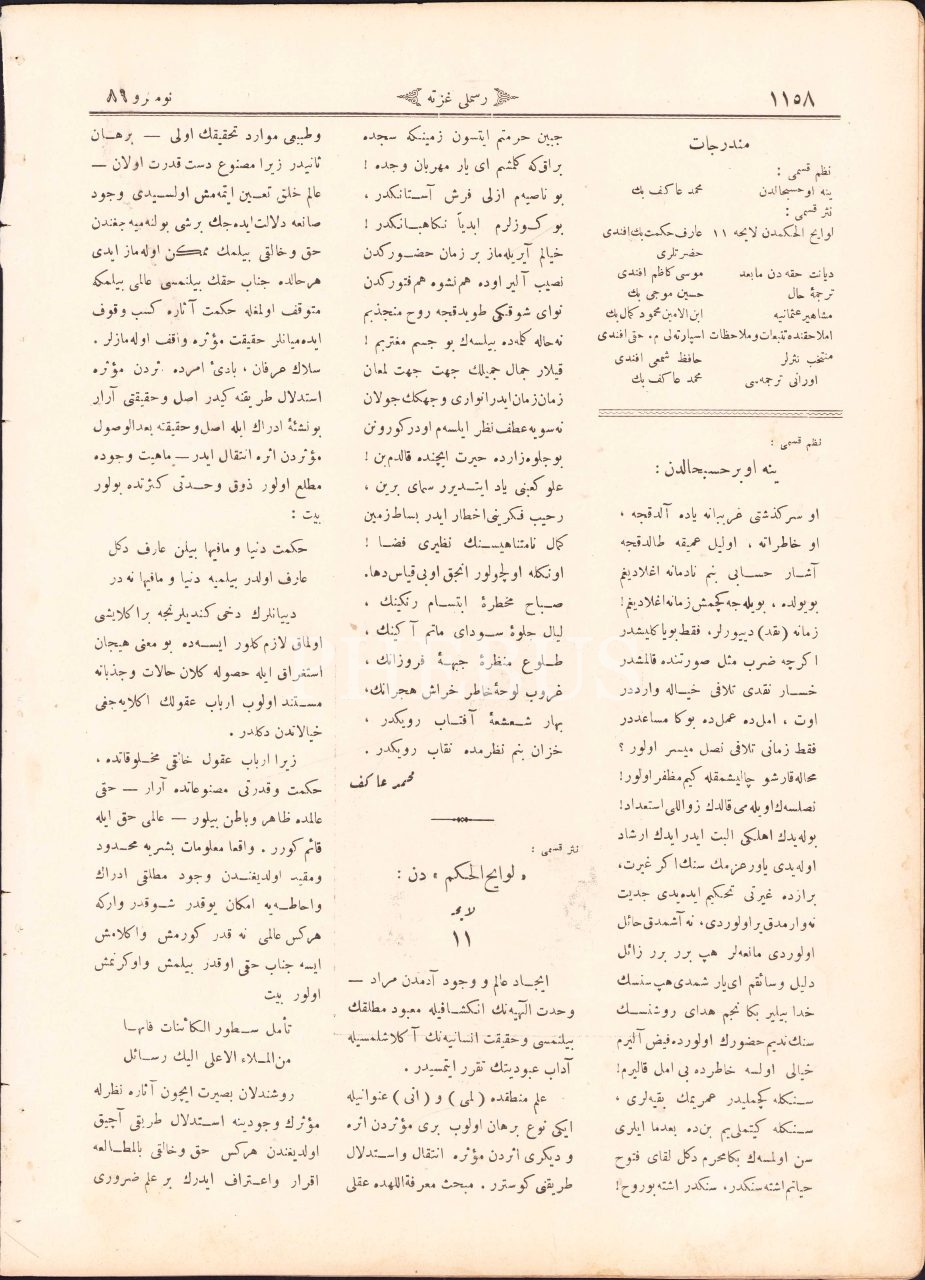 ١١٥٨
رسملی غزته
نومرو ٨٩
مندرجات
نظم قسمی :
ینه او حسبحالدن محمد عاکف بك
نثر قسمی :
لوایح الحکمدن لایحه ١١ عارف حکمت بك افندی
حضرتلری
دیانت حقه دن مابعد موسی کاظم افندی
ترجمهٔ حال حسین موجی بك
مشاهیر عثمانیه ابن الامین محمود کمال بك
املا حقنده تتبعات و ملاحظات اسپارته لی م. حقی افندی
منتخب نثرلر حافظ شمعی افندی
اورانی ترجمه سی محمد عاکف بك
نظم قسمی :
ینه او بر حسبحالدن :
او سرکذشتی غریبانه یاده آلدقجه ،
او خاطراته ، اولیل عمیقه طالدقجه
آشار حسابی بنم نادمانه اغلادیغم
بو یولده ، بویله جه کچمش زمانه اغلادیغم!
زمانه (نقد) دییورلر، فقط بویا کلیشدر
اکرچه ضرب مثل صورتنده قالمشدر
خسار نقدی تلافی خیاله وارددر
اوت ، امل ده عمل ده بوکا مساعددر
فقط زمانی تلافی نصل میسر اولور ؟
محاله قارشو چالیشمقله کیم مظفر اولور!
نصلسه ك اویله می قالدك زواللی استعداد!
بوله یدك اهلیکی البت ایدر ایدك ارشاد
اوله یدی یاور عزمك سنك اکر غیرت،
برازده غیرتی تحکیم ایده یدی جدیت
نه وارمدق بر اولوردی، نه آشمدق حائل
اولوردی مانعه لر هپ برر برر زائل
دلیل و سائقم ای یار شمدی هپ سنسك
خدا بیلیر بکا نجم هدای روشنسك
سنك ندیم حضورك اولورده فیض آلیرم
خیالی اولسه خاطرده بی امل قالیرم!
سنکله کچملیدر عمریمك بقیه لری ،
سنکله کیتملی یم بن ده بعدما ایلری
سن اولمسه ك بکا محرم دکل لقای فتوح
حیاتم اشته سنکدر، سنکدر اشته بو روح!
جبین حرمتم ایتسون زمینکه سجده
براق که کلمشم ای یار مهربان وجده !
بو ناصیه م ازلی فرش آستانکدر ،
بو کوزلرم ابدیاً نکاهبانکدر!
خیالم آیریله ماز بر زمان حضورکدن
نصیب آلیر اوده هم نشوه هم فتورکدن
نوای شوقکی طویدقجه روح منجذبم
نه حاله کلمه ده بیلسه ك بو جسم مغتربم !
قیلار جمال جمیلك جهت جهت لمعان
زمان زمان ایدر انواری وجهکك جولان
نه سویه عطف نظر ایلسه م اودر کورونن
بو جلوه زارده حیرت ایچنده قالدم بن !
علو کعبنی یاد ایتدیرر سمای برین ،
رحیب فکرینی اخطار ایدر بساط زمین
کمال نامتناهیسنك نظیری فضا !
اونکله اولچولور انجق اوبی قیاس دها.
صباح مخطرهٔ ابتسام رنکینك ،
لیال جلوهٔ سودای ماتم آکینك ،
طلوع منظرهٔ جبههٔ فروزانك ،
غروب لوحهٔ خاطر خراش هجرانك،
بهار شعشعهٔ آفتاب رویکدر ،
خزان بنم نظرمده نقاب رویکدر .
محمد عاکف
نثر قسمی :
« لوایح الحکم » دن :
لایحه
١١
ایجاد عالم و وجود آدمدن مراد —
وحدت الهیه نك انکشافیله معبود مطلقك
بیلنمسی و حقیقت انسانیه نك آکلاشلمسیله
آداب عبودیتك تقرر ایتمسیدر .
علم منطقده (لمی) و (انی) عنوانیله
ایکی نوع برهان اولوب بری مؤثردن اثره
و دیکری اثردن مؤثره انتقال و استدلال
طریقنی کوسترر . مبحث معرفة اللهده عقلی
و طبیعی موارد تحقیقك اولی — برهان
ثانیدر زیرا مصنوع دست قدرت اولان —
عالم خلق تعین ایتمه مش اولسیدی وجود
صانعه دلالت ایده جك برشی بولنه میه جغندن
حق و خالقی بیلمك ممکن اوله ماز ایدی
هر حالده جناب حقك بیلنمسی عالمی بیلمکه
متوقف اولمغله حکمت آثاره کسب وقوف
ایده میانلر حقیقت مؤثره واقف اوله مازلر .
سلاك عرفان ، بادئ امرده اثردن مؤثره
استدلال طریقنه کیدر اصل و حقیقتی آرار
بو نشئهٔ ادراك ایله اصل و حقیقته بعدالوصول
مؤثردن اثره انتقال ایدر — ماهیت وجوده
مطلع اولور ذوق وحدتی کثرتده بولور
بیت :
حکمت دنیا و مافیها بیلن عارف دکل
عارف اولدر بیلمیه دنیا و مافیها نه در
دیینلرك دخی کندیلرنجه بر اکلایشی
اولماق لازم کلور ایسه ده بو معنی هیجان
استغراق ایله حصوله کلان حالات و جذباته
مستند اولوب ارباب عقولك اکلایه جغی
خیالاتدن دکلدر .
زیرا ارباب عقول خالقی مخلوقاتده ،
حکمت و قدرتی مصنوعاتده آرار — حقی
عالمده ظاهر و باطن بیلور — عالمی حق ایله
قائم کورر . واقعا معلومات بشریه محدود
و مقید اولدیغندن وجود مطلقی ادراك
و احاطه یه امکان یوقدر شوقدر وارکه
هرکس عالمی نه قدر کورمش واکلامش
ایسه جناب حقی اوقدر بیلمش واوکرنمش
اولور بیت
تأمل سطور الکائنات فانها
من الملاء الاعلی الیك رسائل
روشندلان بصیرت ایچون آثاره نظرله
مؤثرك وجودینه استدلال طریقی آچیق
اولدیغندن هرکس حق و خالقی بالمطالعه
اقرار و اعتراف ایدرك بر علم ضروری